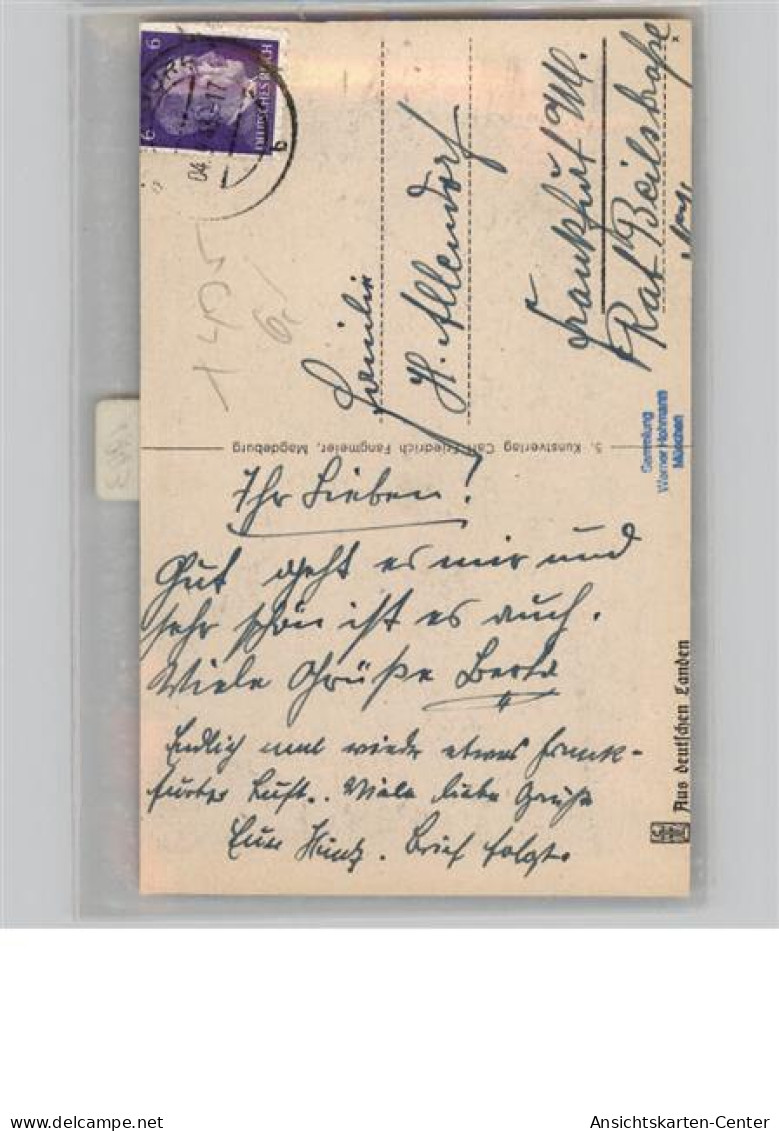 6
6
DEUTSCHES REICH
Familie
H. Allendorf
Frankfurt M.
Rat Beilstraße
5. Kunstverlag Carl Friedrich Fangmeier, Magdeburg
Sammlung
Werner Hohmann
München
Ihr Lieben!
Gut geht es mir und
sehr schön ist es auch.
Viele Grüße Berta
Endlich mal wieder etwas Frank-
furter Luft.. Viele liebe Grüße
Eure . Brief folgt.
Aus deutschen Landen
delcampe.net
Ansichtskarten-Center